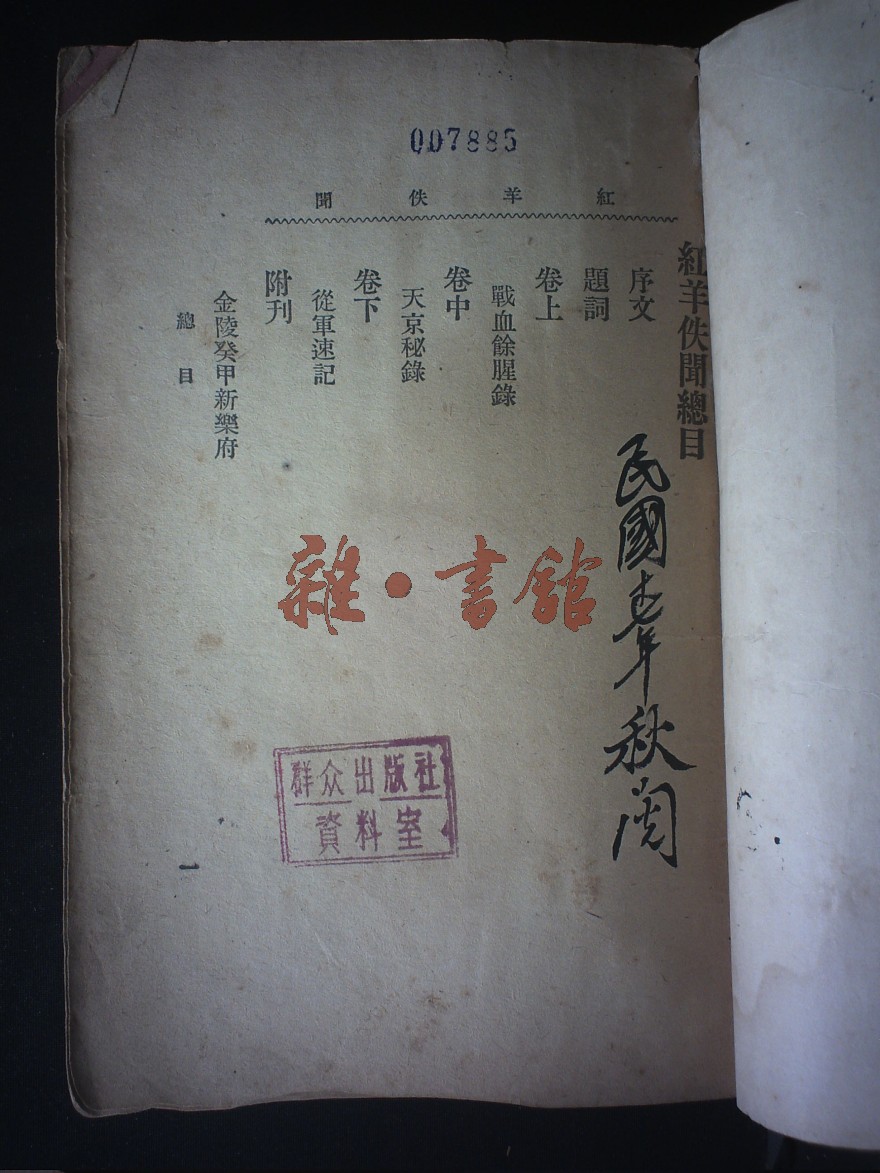 007885
紅羊佚聞
紅羊佚聞總目
序文
題詞
卷上
戰血餘腥錄
卷中
天京秘錄
卷下
從軍速記
附刊
金陵癸甲新樂府
總目
一
民國年秋
雜·書館
群众出版社
資料室